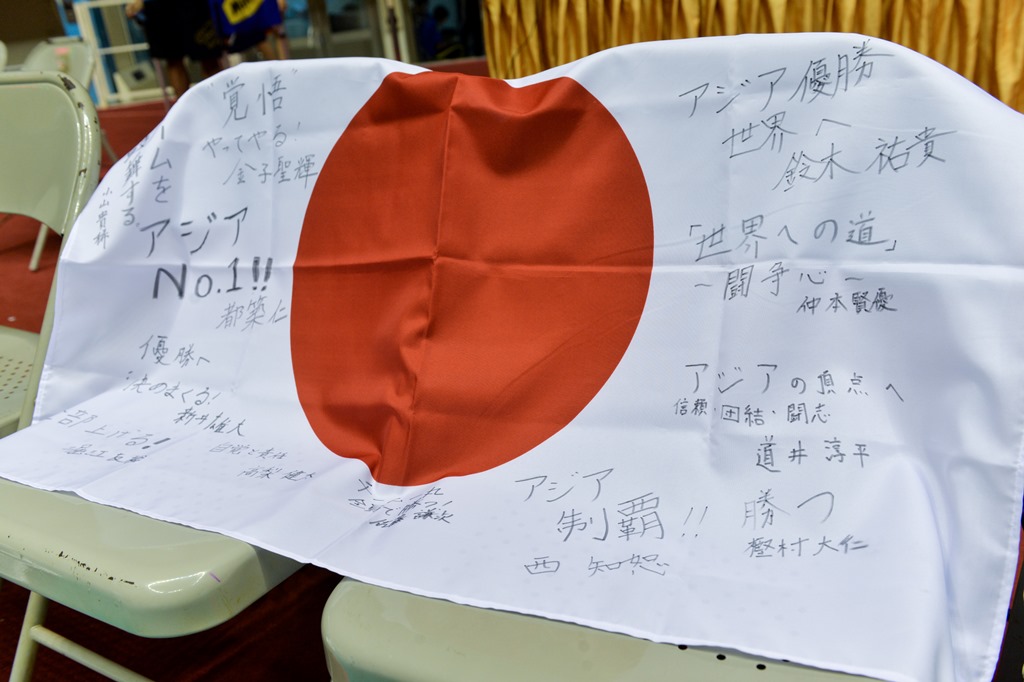 "覚悟"
やってやる!
金子聖輝
ームを
する。
小山貴稀
アジア
No.1!!
都築仁
優勝へ
決めまくる!
新井雄大
全部上げる!
アジア
制覇!!
西 知恕
アジア優勝
世界へ
鈴木祐貴
「世界への道」
~闘争心~
仲本賢優
アジアの頂点へ
信頼・団結・闘志
道井淳平
勝つ
樫村大仁